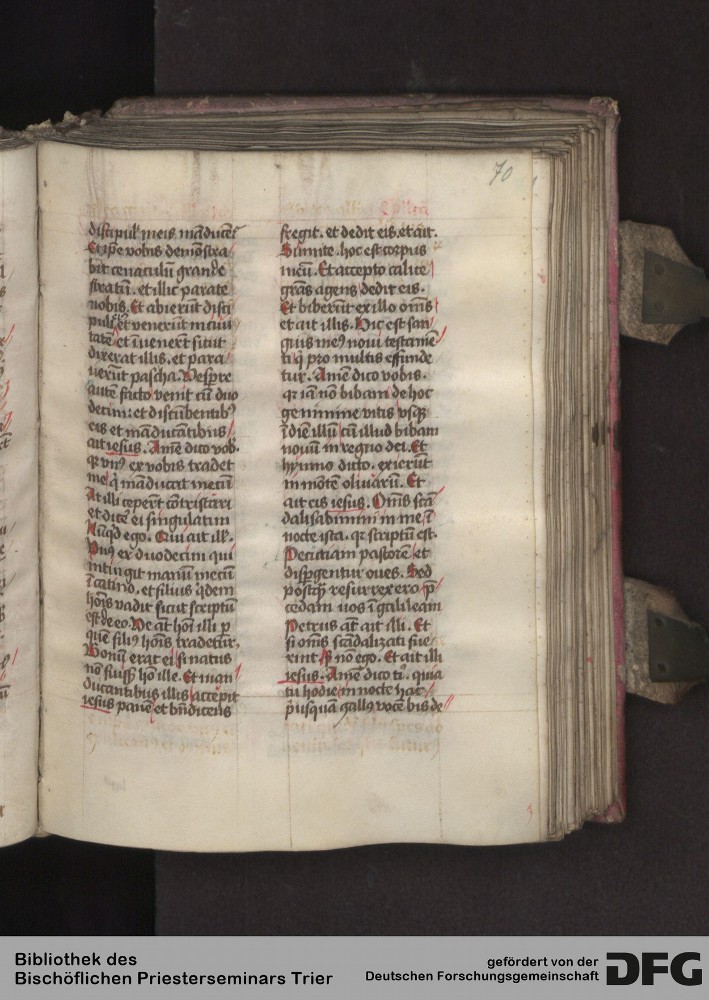 70
discipul' meis māducē
Et ip̄e vobis demōstra
bit cenaculū grande
stratū. et illic parate
nobis. Et abierūt disci
puli ei9 et venerūt in ciui
tatē et īuenerūt sicut
dixerat illis. et para
uerūt pascha. Vespre
autē facto venit cū duo
decim: et discūbentib9
eis et māducātibus
ait iesus. Amē dico vob.
qr vn9 ex vobis tradet
me q māducat mecū
At illi ceperūt cōtristari
et dicē ei singulatim
Nūqd ego. Qui ait ill'.
Vn9 ex duodecim qui
intingit manū mecū
ī catino. et filius qdem
hōis vadit sicut scriptū
est de eo. Ve āt hōi illi p
quē fili9 hōis tradetur.
Bonū erat ei si natus
nō fuiss3 hō ille. Et man
ducantibus illis accepit
iesus panē et bn̄dicens
fregit. et dedit eis. et ait.
Sumite. hoc est corpus
meū. Et accepto calice
grās agens dedit eis.
Et biberūt ex illo om̄s
et ait illis. Hic est san
guis me9 noui testamē
ti q pro multis effunde
tur. Amē dico vobis.
qr iā nō bibam de hoc
genimine vitis vsq3
ī diē illū cū illud bibam
nouū in regno dei. Et
hymno dicto. exierūt
in mōtē oliuarū. Et
ait eis iesus. Om̄s scā
dalisabimini in me ī
nocte ista. qr scriptū est.
Percutiam pastorē et
dispgentur oues. Sed
postq̄ resurrexero p̄
cedam uos ī galileam
Petrus āt ait illi. Et
si om̄s scādalizati fue
rint s3 nō ego. Et ait illi
iesus. Amē dico ti. quia
tu hodie in nocte hac
p̄usquā gall9 vocē bis de
Bibliothek des
Bischöflichen Priesterseminars Trier
gefördert von der
Deutschen Forschungsgemeinschaft
DFG